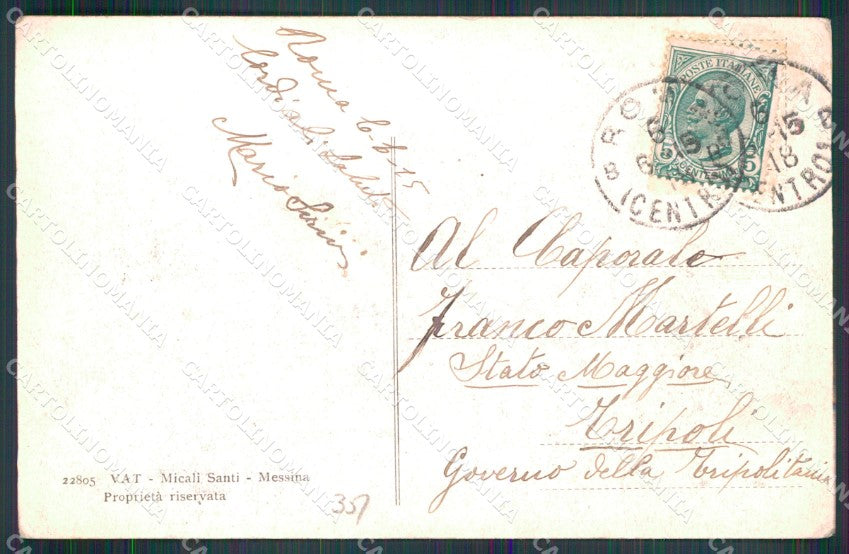 Roma 6-6-15
Cordiali saluti
Mario
POSTE ITALIANE
5
5
CENTESIMI
ROMA
(CENTRO)
6
15
18
Al Caporale
Franco Martelli
Stato Maggiore
Tripoli
Governo della Tripolitania
22805 VAT - Micali Santi - Messina
Proprietà riservata
351
CARTOLINOMANIA